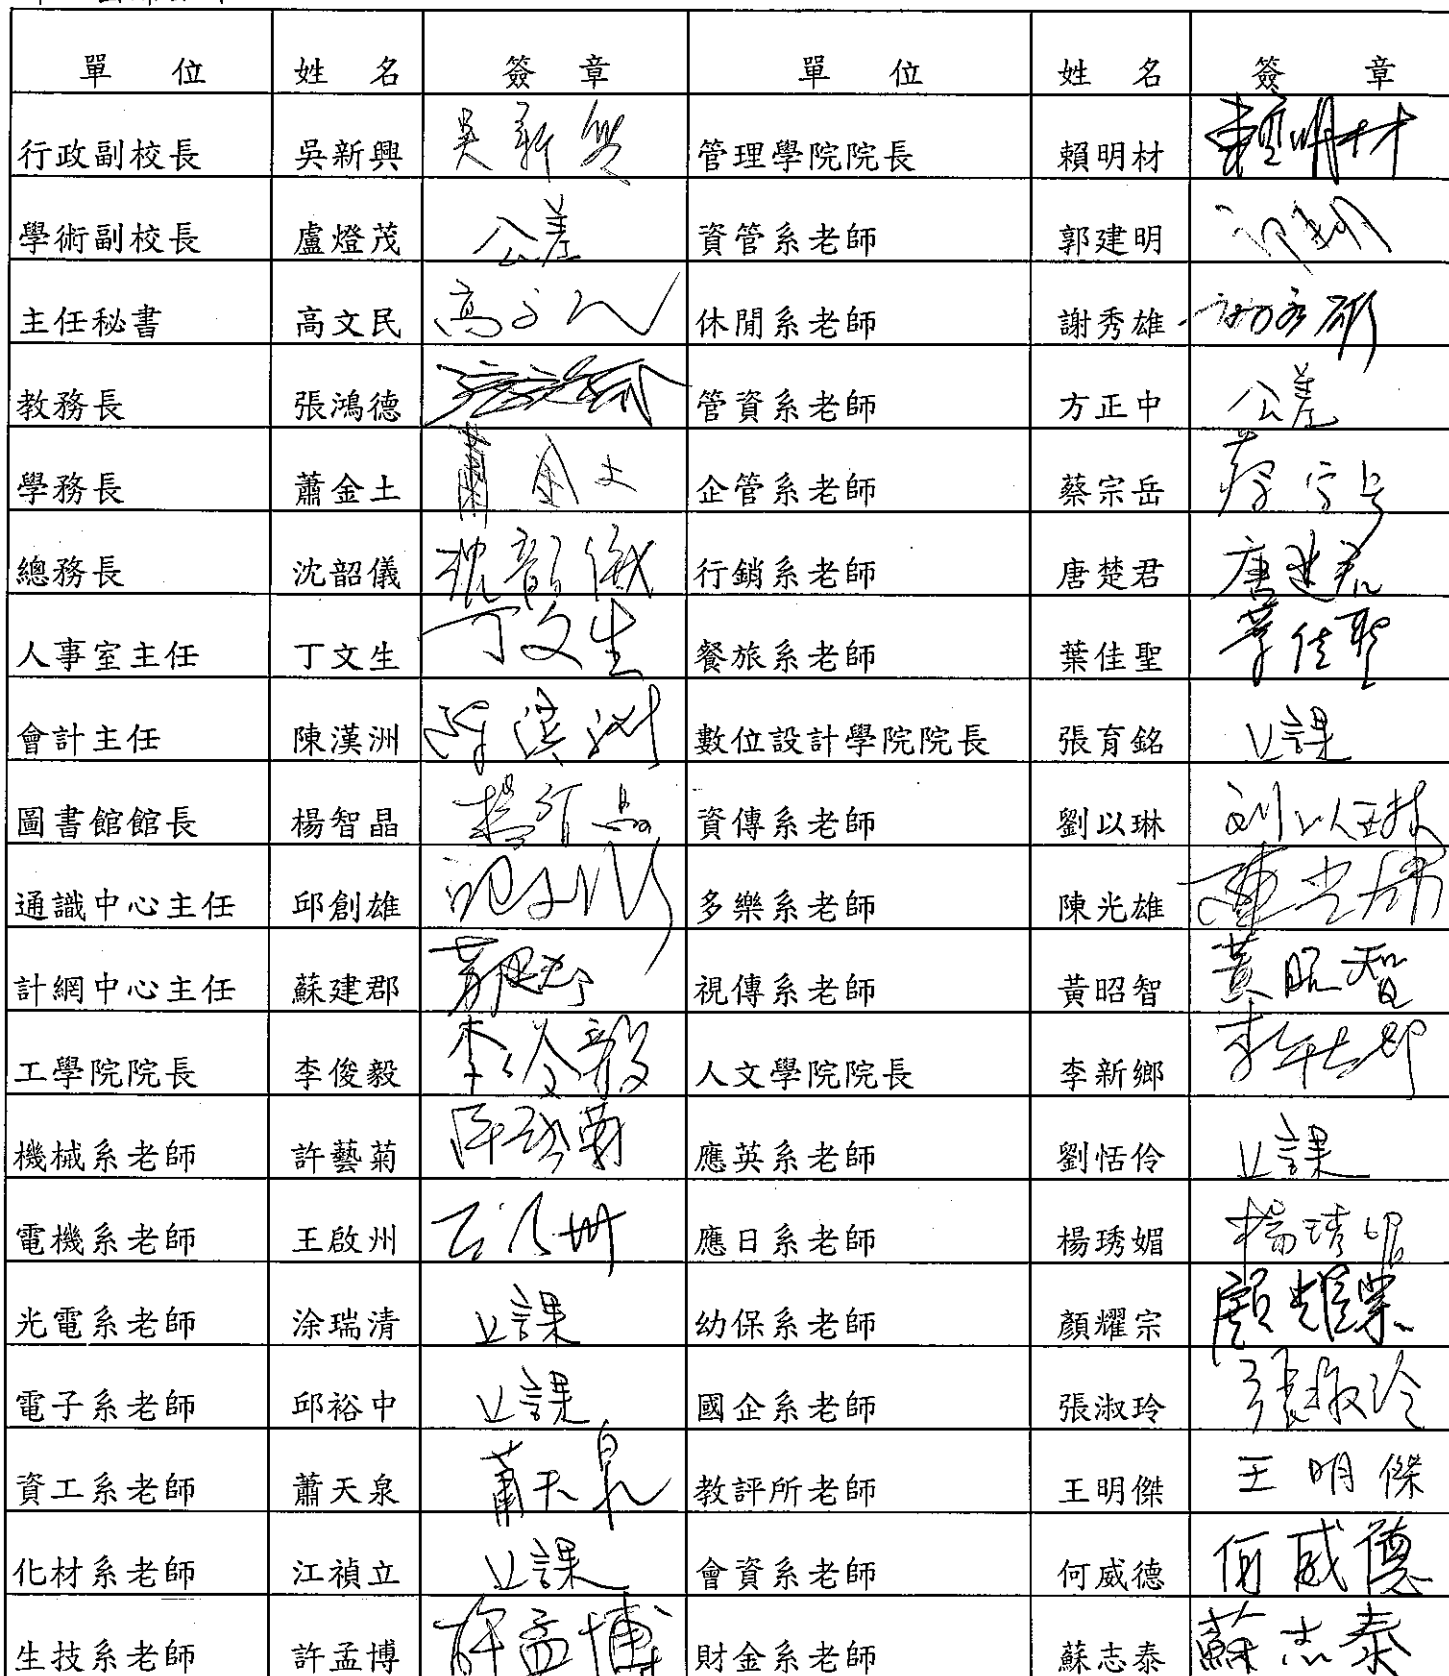 單 位 姓 名 簽 章 單 位 姓 名 簽 章
行政副校長 吳新興 吳新興 管理學院院長 賴明材 賴明材
學術副校長 盧燈茂 公差 資管系老師 郭建明
主任秘書 高文民 高文民 休閒系老師 謝秀雄 謝秀雄
教務長 張鴻德 管資系老師 方正中 公差
學務長 蕭金土 蕭金土 企管系老師 蔡宗岳 蔡宗岳
總務長 沈韶儀 沈韶儀 行銷系老師 唐楚君 唐楚君
人事室主任 丁文生 丁文生 餐旅系老師 葉佳聖 葉佳聖
會計主任 陳漢洲 陳漢洲 數位設計學院院長 張育銘 上課
圖書館館長 楊智晶 楊智晶 資傳系老師 劉以琳 刘以琳
通識中心主任 邱創雄 多樂系老師 陳光雄 陳光雄
計網中心主任 蘇建郡 視傳系老師 黃昭智 黃昭智
工學院院長 李俊毅 李俊毅 人文學院院長 李新鄉
機械系老師 許藝菊 許藝菊 應英系老師 劉恬伶 上課
電機系老師 王啟州 王啟州 應日系老師 楊琇媚 楊琇媚
光電系老師 涂瑞清 上課 幼保系老師 顏耀宗 顏耀宗
電子系老師 邱裕中 上課 國企系老師 張淑玲 張淑玲
資工系老師 蕭天泉 蕭天泉 教評所老師 王明傑 王明傑
化材系老師 江禎立 上課 會資系老師 何威德 何威德
生技系老師 許孟博 許孟博 財金系老師 蘇志泰 蘇志泰